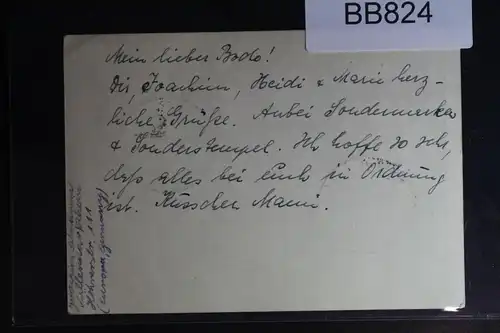 BB824
Mein lieber Bodo!
Dir, Joachim, Heidi & Marie herz-
liche Grüße. Anbei Sondermarke
& Sonderstempel. Ich hoffe so sehr,
daß alles bei euch in Ordnung
ist. Küsschen Mami.
(Europa, Germany)